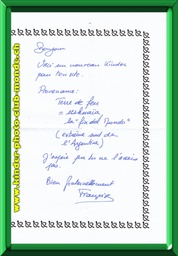 Bonjour
Voici un nouveau Kinder
pour ton site.
Provenance:
Terre de feu
- Ushuaia
la "fin del Mundo"
(extrême sud de
l'Argentine)
J'espère que tu ne l'avais
pas.
Bien fraternellement
Françoise
www.kinder-photo-club-monde.ch